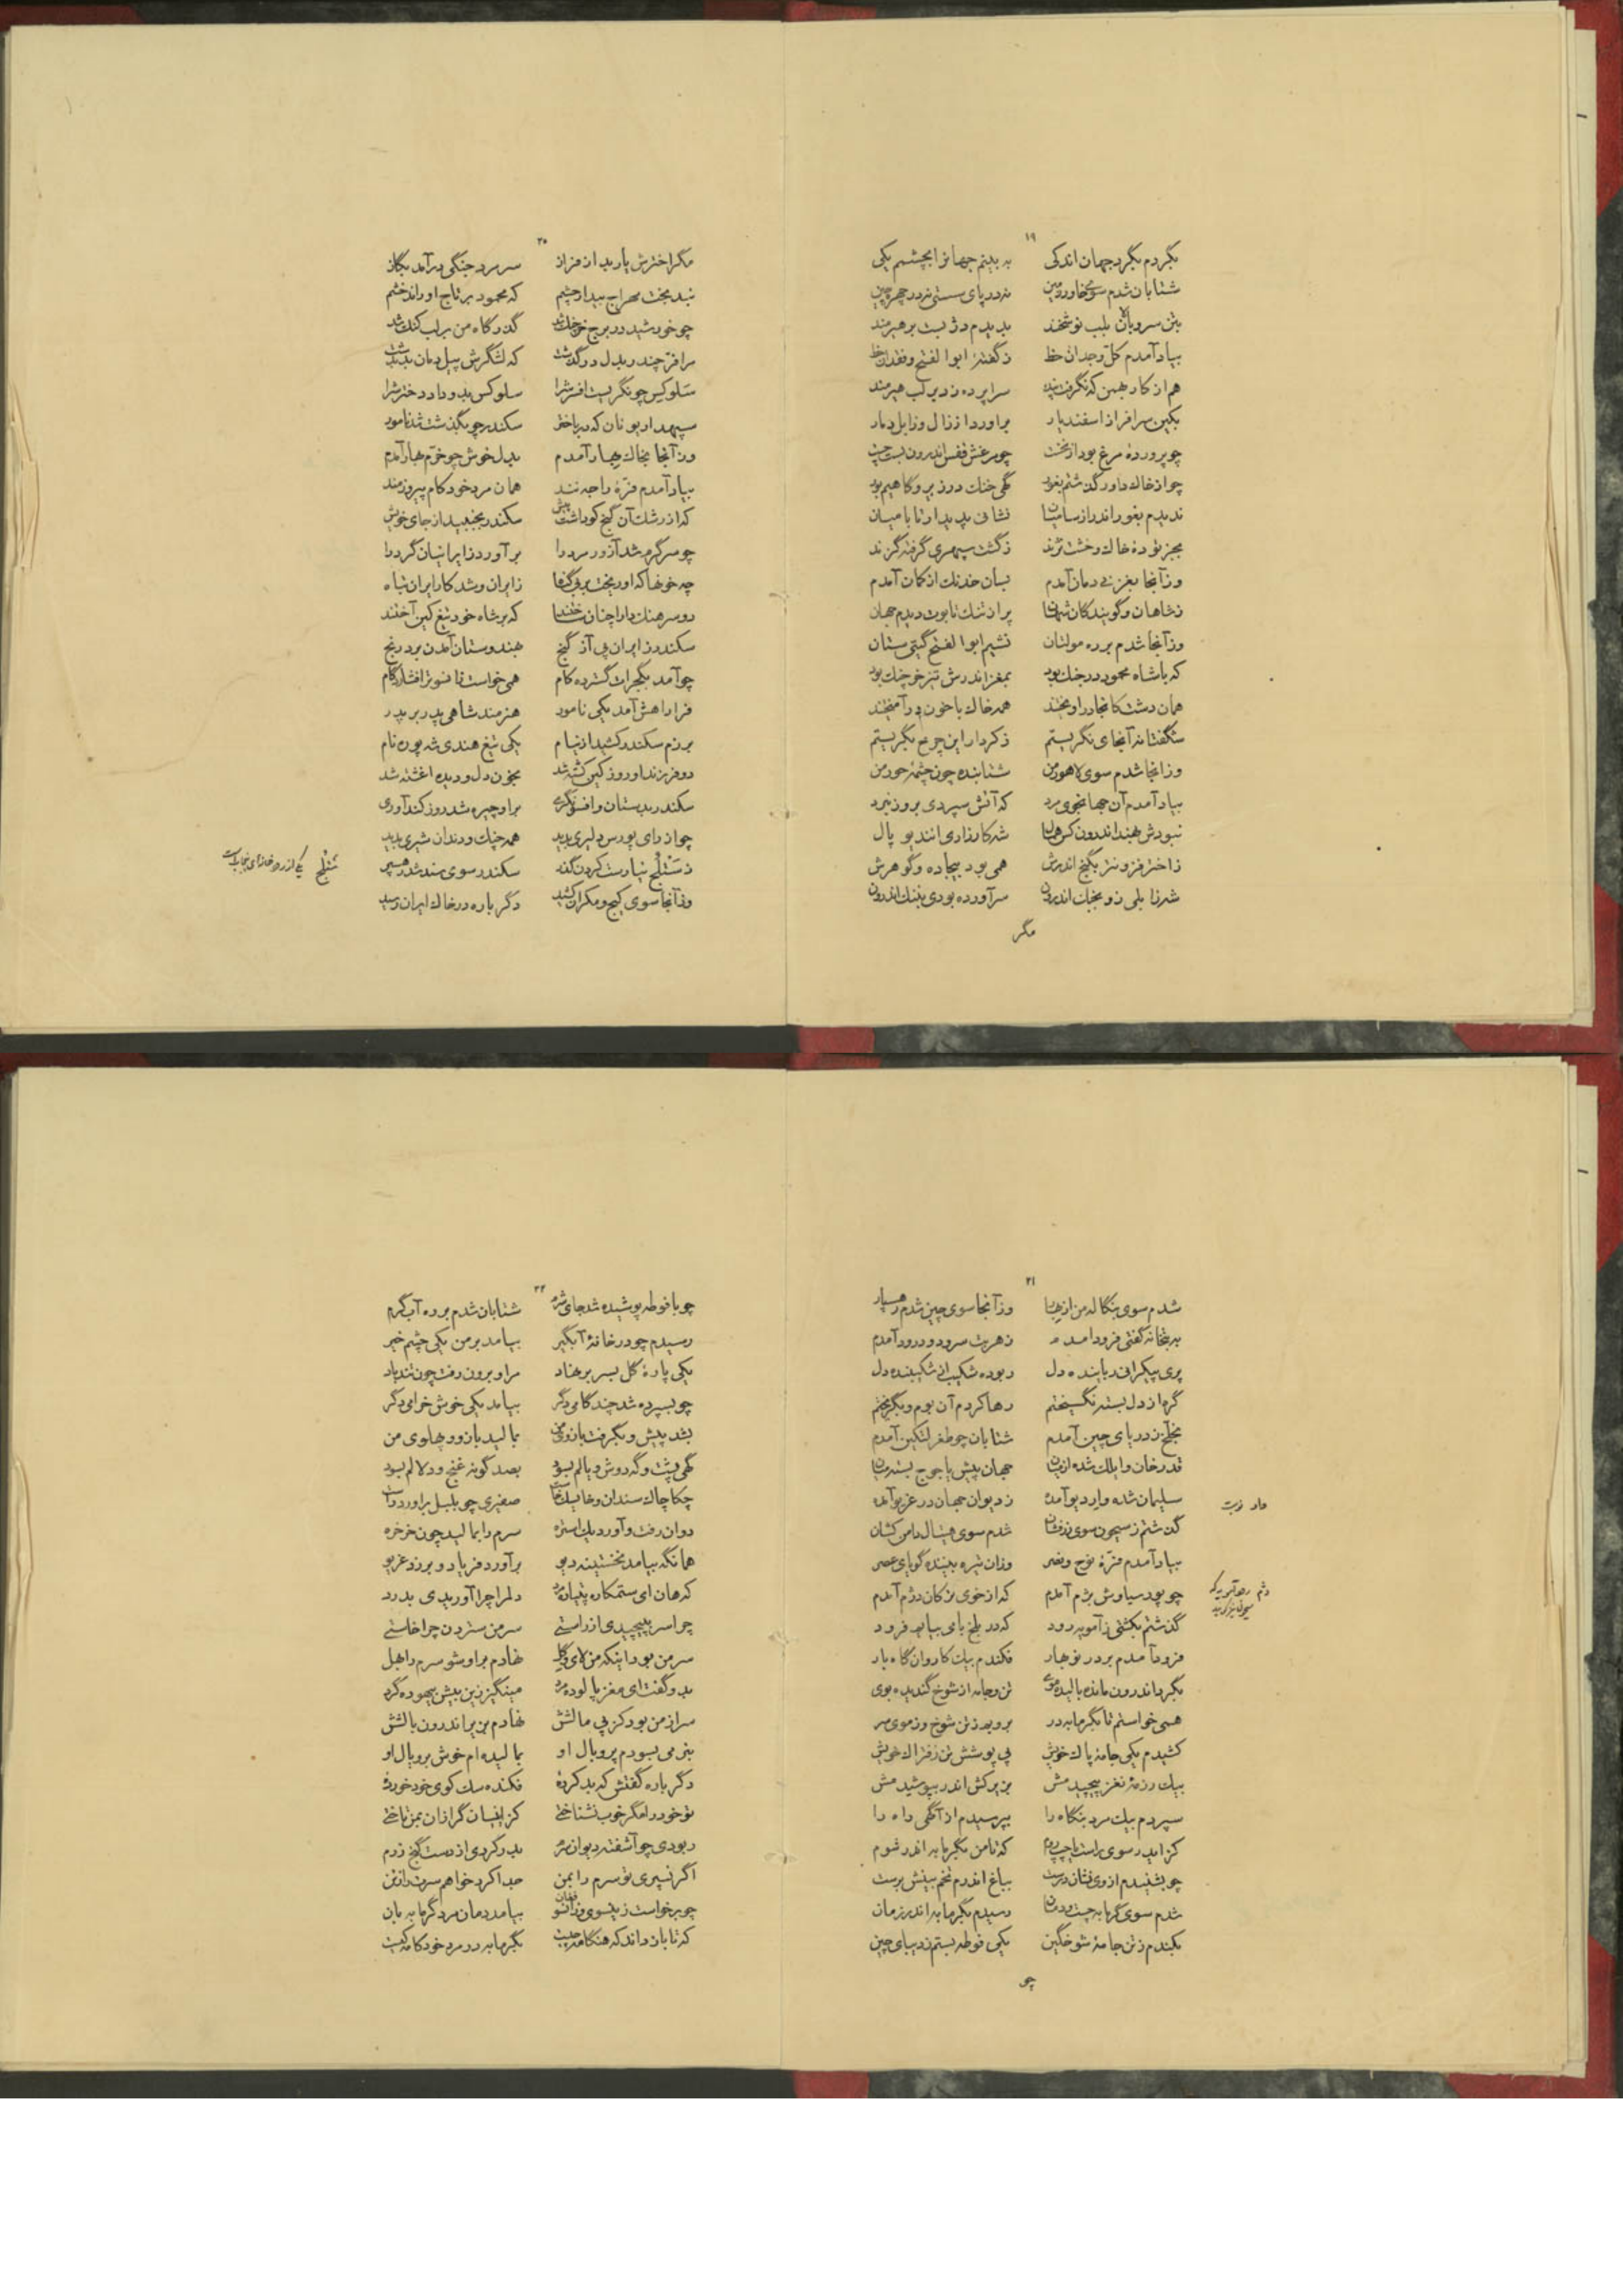 ۱۹
بگردم بگرد جهان اندکی به بینم جهانرا بچشم یکی
شتابان شدم سوی خاور زمین نه در پای سستی نه در چهر چین
بتن سرو بالا بلب نوشخند بدیدم دژ بست بر هیرمند
بیاد آمدم کلّ وجدان خط ز گفتهٔ ابوالفتح وفقدان خط
هم از کار بهمن که نگرفت پند سراپرده زد بر لب هیرمند
بکین سرافراز اسفندیار برآورد از زال و زابل دمار
چو پروردهٔ مرغ بود از نخست چو مرغش قفس اندرون بست چست
چو از خاک داور گذشتم بغور گهی خنک در زیر و گاهیم بور
ندیدم بغور اندر از سامیان نشانی پدیدار تا بامیان
بجز تودهٔ خاک و خشت نژند ز گشت سپهری گرفته گزند
وز آنجا بغزنی دمان آمدم بسان خدنک از کمان آمدم
ز شاهان و گویندگان شهان پر از تنک تابوت دیدم جهان
وز آنجا شدم بر ره مولتان نشیم ابوالفتح گیتی ستان
که با شاه محمود در جنک بود بمغز اندرش تیز خرچنک بود
همان دشت کانجا در آویختند همه خاک با خون در آمیختند
شگفتانه آنجای نگریستم ز کردار این چرخ بگریستم
وز انجا شدم سوی لاهور من شتابنده چون چشمهٔ حور من
بیاد آمدم آن جهانجوی مرد که آتش سپردی بروز نبرد
نبودش بهند اندرون کس همال شه کارزاری انندیو پال
ز اختر فزونتر بگنج اندرش همی بود بیجاده و گوهرش
شه زابلی زو بجنک اندرون سرآورده بودی بننک اندرون
مگر
۲۰
مگر اخترش یار بد از فراز سر مرد جنگی درآمد بگاز
نبد بخت مهراج بیدار چشم که محمود بر تاج او راند خشم
چو خورشید در برج خرچنک شد گذرگاه من بر لب کنک شد
مرا فرّ چندر بدل درگذشت که لشگرش پیل دمان بد بدشت
سلوکیس چو نگریست افسرش را سلوکس بدو داد دخترش را
سپهدار یونان که در باختر سکندر چو بگذشت شد نامور
وز آنجا بخاک بهار آمدم بدل خوش چو خرّم بهار آمدم
بیاد آمدم فرّهٔ راجه نند همان مرد خودکام پیروزمند
که از رشک آن گنج کو داشت پیش سکندر بجنبید از جای خویش
چو سرگرم شد آز ور مرد را برآورد ز ایرانیان گرد را
چه خونها که او ریخت بر بیگناه ز ایران و شد کار ایران تباه
دو سرهنک دارا چنان ساختند که بر شاه خود تیغ کین آختند
سکندر ز ایران پی آز گنج بهندوستان آمدن برد رنج
چو آمد بگجرات گسترده کام همی خواست تا نسوتر افشارد گام
فرا راهش آمد یکی نامور هنرمند شاهی پدر بر پدر
برزم سکندر کشید از نیام یکی تیغ هندی شه پورن نام
دو فرزند او روز کین کشته شد بخون دل و دیده اغشته شد
سکندر بدستان و افسونگری برا و چیره شد روز کندآوری
چو از رای پورس دلیری بدید همه چنک و دندان شیری بدید
ز سَتْلُج نیارست کردن گذر سکندر سوی سند شد رهسپر
وز آنجا سوی کیج و مکران کشید دگر باره در خاک ایران رسید
سَتْلُج یکی از رودخانهای پنجاب است
۲۱
شدم سوی بنگاله من از بهار وز آنجا سوی چین شدم رهسپار
به بتخانه گفتی فرود امدم ز هر بت سرود و درود آمدم
پری پیکرانی رباینده دل ربوده شکیب از شکیبنده دل
گره از دل بسته نگسیختم رها کردم آن بوم و بگریختم
بخلّخ ز دریای چین آمدم شتابان چو طغرلتکین آمدم
قدر خان و ایلک شده از میان جهان پیش یاجوج بسته میان
سلیمان شده وارد یو آمده ز دیوان جهان در غریو آمده
گذشتم ز سیحون سوی فرغان شدم سوی هیتال دامن کشان
بیاد آمدم فرّهٔ نوح و نصر وزان تیره بیننده گویای عصر
چو پور سیاوش بژم آمدم که از خوی ترکان دژم آمدم
گذشتم بکشتی ز آمویه رود که در بلخ بامی بیایم فرود
فرود آمدم بر در نوبهار فکندم بیک کاروان گاه بار
بگرد اندرون مانده بالیده موی تن و جامه از شوخ گندیده بوی
همی خواستم تا بگرمابه در بروبم ز تن شوخ وز موی سر
کشیدم یکی جامهٔ پاک خویش پی پوشش تن ز فتراک خویش
بیک رزمهٔ نغز پیچیدمش بزیرکش اندر بپوشیدمش
سپردم بیک مرد بنگاه را بپرسیدم از آگهی راه را
کز ایدر سوی راست یا چپ روم که تا من بگرمابه اندر شوم
چو بشنیدم از وی نشان درست بباغ اندرم تخم بینش برست
شدم سوی گرمابه چست و دمان رسیدم بگرمابه اندر زمان
بکندم ز تن جامهٔ شوخگین یکی فوطه بستم ز دیبای چین
چو
۲۲
چو با فوطه پوشیده شد جای شرم شتابان شدم بر ره آب گرم
رسیدم چو در خانهٔ آبگیر بیامد بر من یکی چشم خیر
یکی پارهٔ گل بسر بر نهاد مرا و برون رفت چون تندباد
چو بسپرده شد چند گامی دگر بیامد یکی خوش خرامی دگر
بشد پیش و بگرفت بازوی من بمالید بازو و پهلوی من
گهی پشت و گه دوش و یالم بسود بصد گونه غنج و دلالم بسود
چکاچاک سندان و خایسک خاست صفیری چو بلبل برآورد راست
دوان رفت و آورد یک استره سرم را بمالید چون خرخره
همانگه بیامد نخستینه دیو برآورد فریاد و بر زد غریو
که هان ای ستمکاره پتیاره مرد دلمرا چرا آوریدی بدرد
چرا سر بپیچیدی از راستی سر من ستردن چرا خاستی
سر من بود اینکه من لای و گل نهادم بر او شو سرم را بهل
بدو گفت ای مغز پالوده مرد مینگیز زین بیش بیهوده گرد
سر از من بود کز پی مالشش نهادم بزیر اندرون بالشش
بنرمی بسودم پر و بال او بمالیده ام خوش بر و یال او
دگر باره گفتش که بد کردهٔ فکنده سک کوی خود خوردهٔ
تو خود را مگر خوب نشناختی کز اینسان گرازان بمن تاختی
ربودی چو آشفته دیوان سرم بدر کردی از دست گنج زرم
اگر نسپری تو سرم را بمن جدا کرد خواهم سرت را ز تن
چو برخواست زینسوی و زانسو فغان بیامد دمان مرد گرمابه بان
که تا باز داند که هنگامه چیست بگرمابه در مرد خودکامه کیست